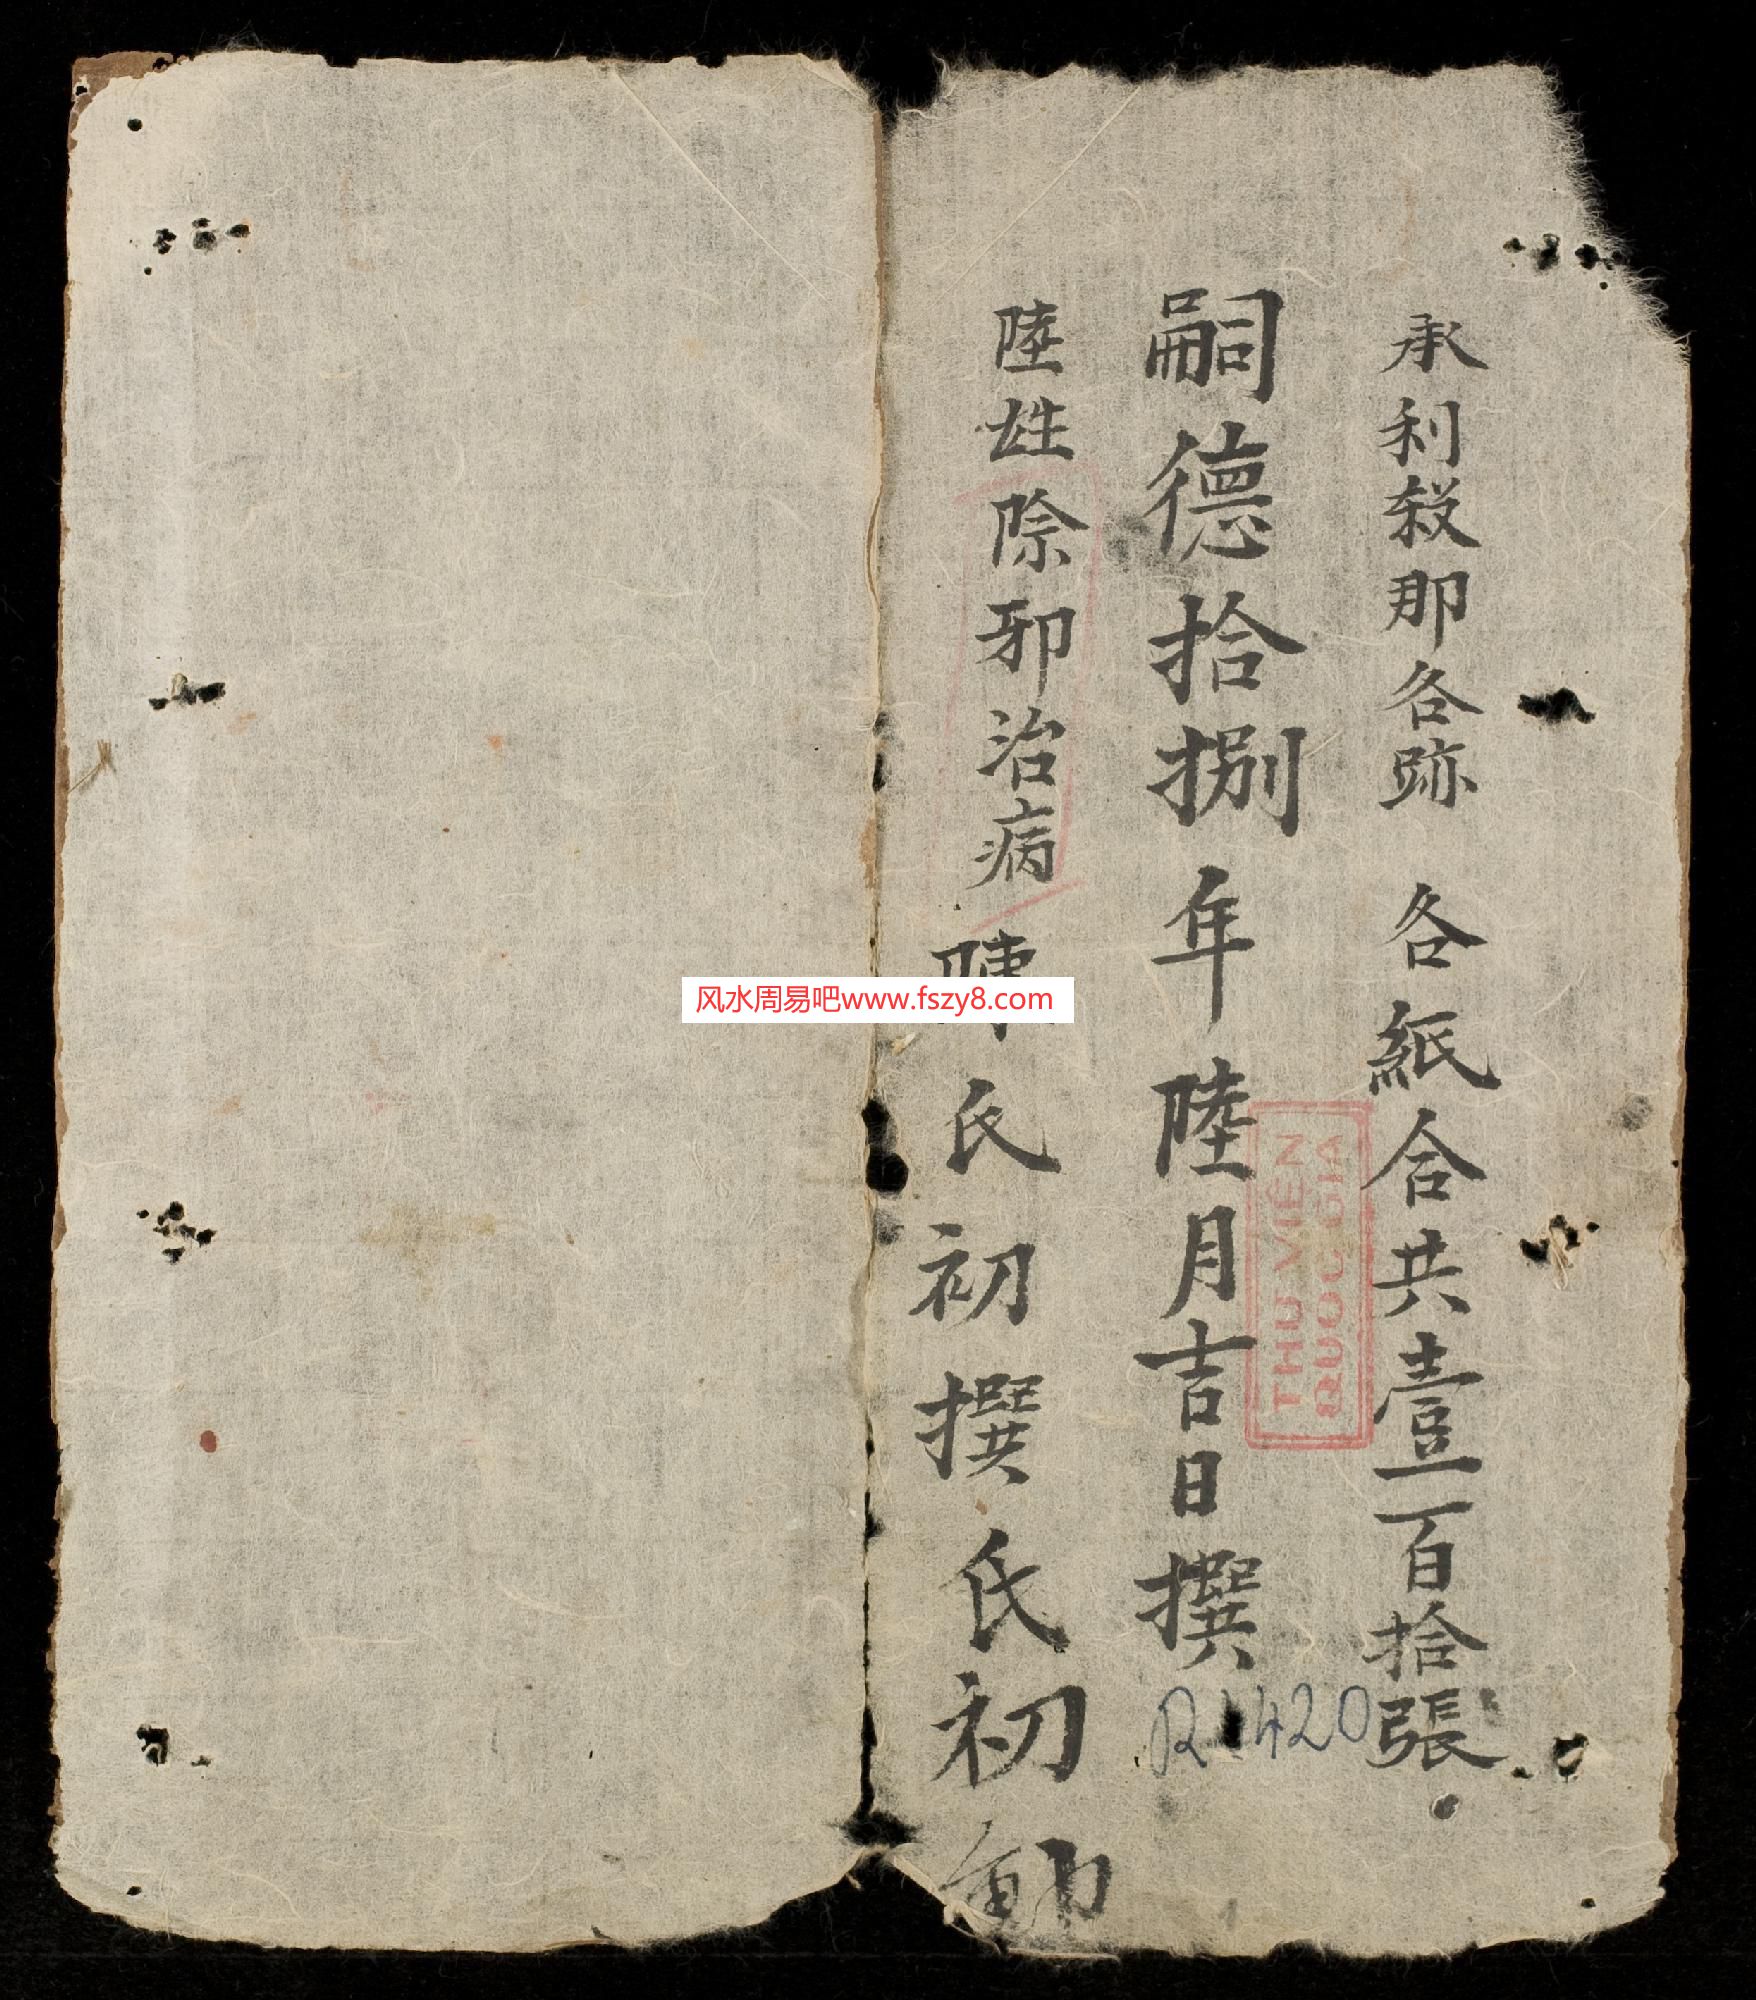 承利殺那各跡 各紙合共壹百拾張
嗣德拾捌年陸月吉日撰
陸姓除邪治病 陳氏初撰氏初
THƯ VIỆN
QUỐC GIA
R1420
风水周易吧www.fszy8.com